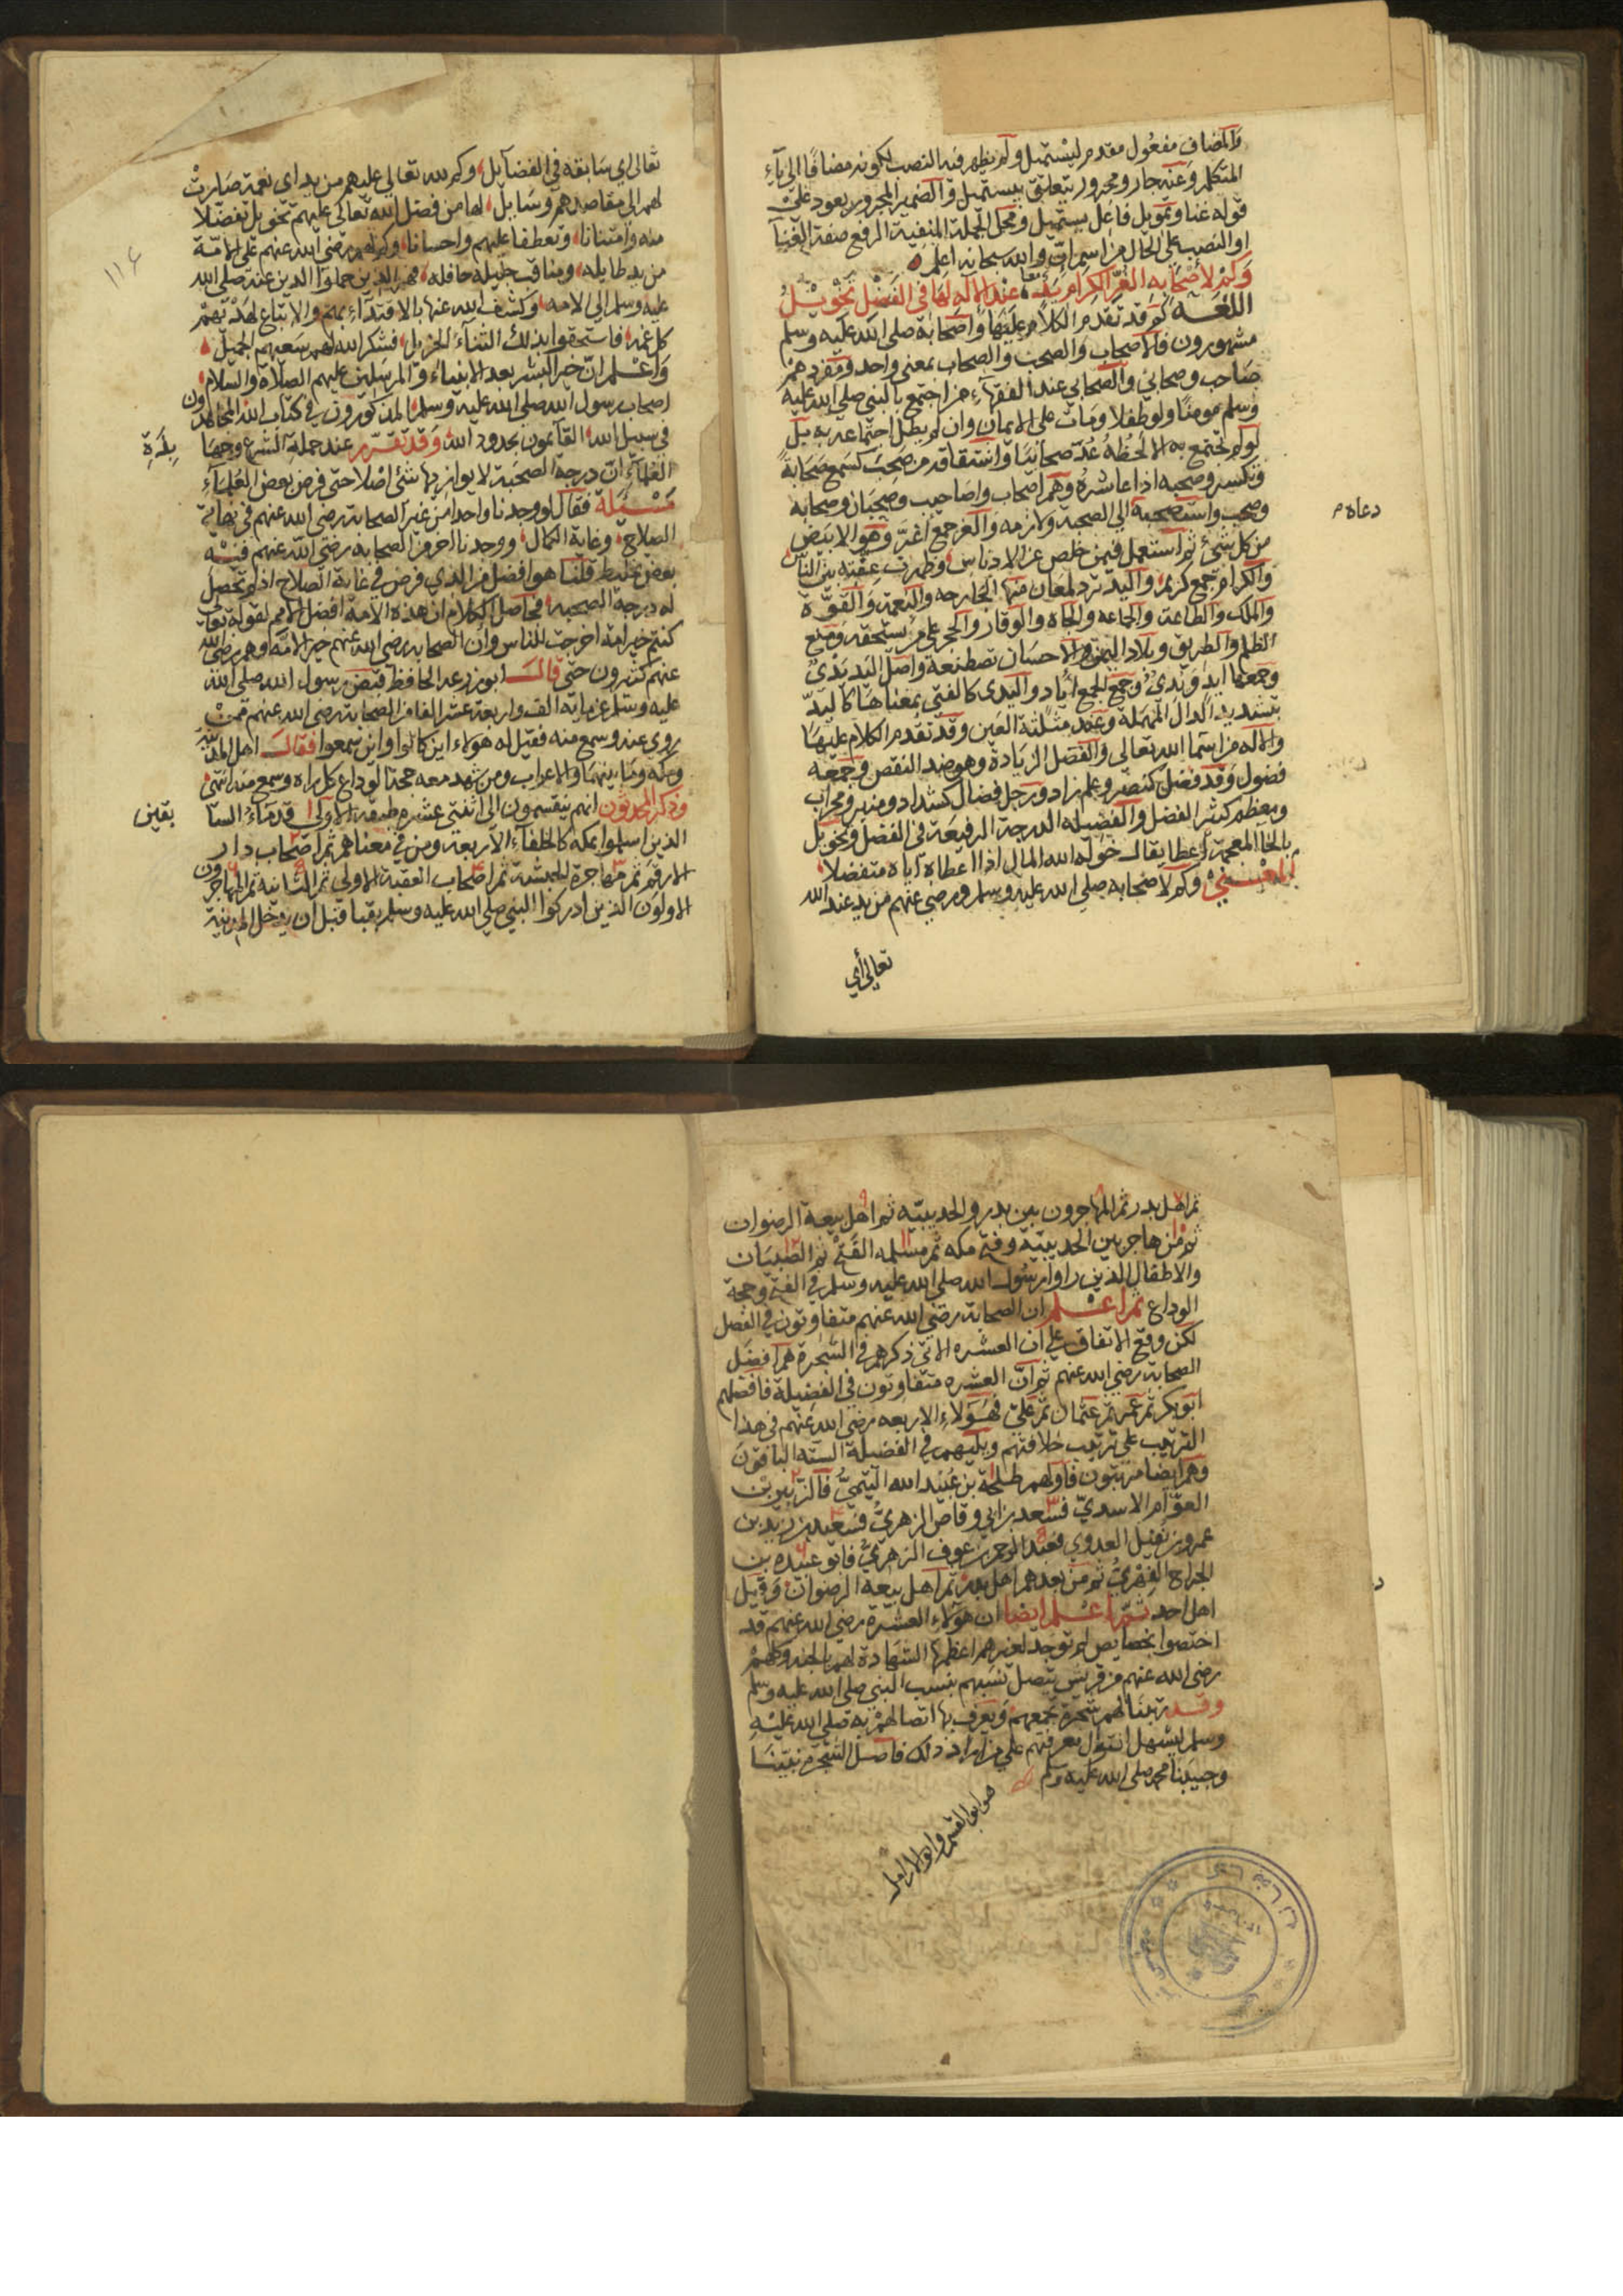 والمضاف مفعول مقدم ليستميل ولم يظهر فيه النصب لكونه مضافا الى ياء
المتكلم وعنه جار ومجرور يتعلق بيستميل والضمير المجرور يعود على
قوله غنا وتمويل فاعل يستميل ومحل الجملة المنفية الرفع صفة الغنا
او النصب على الحال من اسم ان والله سبحانه اعلم
وكم لاصحابه الغر الكرام يد عند الاله لها في الفضل تخويل
اللغة كم قد تقدم الكلام عليها واصحابه صلى الله عليه وسلم
مشهورون فالاصحاب والصحب والصحاب بمعنى واحد ومفردهم
صاحب وصحابي والصحابي عند الفقهاء من اجتمع بالنبي صلى الله عليه
وسلم مومنا ولو طفلا ومات على الايمان وان لم يطل اجتماعه به بل
لو لم يجتمع به الا لحظه عد صحابيا واشتقاقه من صحب كسمع صحابة
وتكسر وصحبه اذا عاشره وهم اصحاب واصاحيب وصحبان وصحابه
وصحب واستصحبه الى الصحبه ولازمه والغر جمع اغر وهو الابيض
دعاه م
من كل شئ ثم استعمل فيمن خلص عن الادناس وظهرت عفته بين الناس
والكرام جمع كريم واليد ترد لمعان منها الجارحه والنعمة والقوة
والملك والطاعة والجاعه والجاه والوقار والحجر على من يستحقه ومنع
الظلم والطريق وبلاد اليمن والاحسان تصطنعه واصل اليد يدي
وجمعها ايد ويدي وجمع الجمع اياد واليدى كالفتى بمعناها كاليد
بتشديد الدال المهملة وعند مثلثة العين وقد تقدم الكلام عليها
والاله من اسماء الله تعالى والفضل الزيادة وهو ضد النقص وجمعه
فضول وقد فضل كنصر وعلم زاد ورجل فضال كشداد ومنبر ومحراب
ومعظم كثير الفضل والفضيله الدرجة الرفيعة في الفضل وتخويل
بالخاء المعجمة اعطا يقال خوله الله المال اذا اعطاه اياه متفضلا
المعنى وكم لاصحابه صلى الله عليه وسلم ورضي عنهم من يد عند الله
تعالى أي
١١٤
تعالى اي سابقه في الفضايل وكم لله تعالى عليهم من يد اى نعمة صارت
لهم الى مقاصدهم وسايل لها من فضل الله تعالى عليهم تخويل تفضلا
منه وامتنانا وتعطفا عليهم واحسانا وكم لهم رضي الله عنهم على الامة
من يد طايله ومناقب جليله حافله فهم الذين حملوا الدين عنه صلى الله
عليه وسلم الى الامه وكشف الله عنها بالاقتداء بهم والاتباع لهديهم
كل غمه فاستحقوا بذلك الثناء الجزيل فشكر الله لهم سعيهم الجميل
واعلم ان خير البشر بعد الانبياء والمرسلين عليهم الصلاة والسلام
اصحاب رسول الله صلى الله عليه وسلم المذكورون في كتاب الله المجاهدون
في سبيل الله القايمون بحدود الله وقد تقرر عند حملة الشرع وجها
بذة
العلماء ان درجة الصحبة لا يوازيها شئ اصلا حتى فرض بعض العلماء
مسئلة فقال لو وجدنا واحدا من غير الصحابة رضي الله عنهم في نهاية
الصلاح وغاية الكمال ووجدنا اخر من الصحابة رضي الله عنهم فيه
بعض تخليط قلنا هو افضل من الذي فرض في غاية الصلاح اذ لم تحصل
له درجة الصحبه فحاصل الكلام ان هذه الامة افضل الامم لقوله تعالى
كنتم خير امة اخرجت للناس وان الصحابه رضي الله عنهم خير الامه وهم رضي الله
عنهم كثيرون حتى قال ابو زرعه الحافظ قبض رسول الله صلى الله
عليه وسلم عن مايه الف واربعة عشر الفا من الصحابة رضي الله عنهم ممن
روى عنه وسمع منه فقيل له هولاء اين كانوا واين سمعوا فقال اهل المدينه
ومكه وما بينهما والاعراب ومن شهد معه حجة الوداع كل راه وسمع منه انتهى
وذكر المحدثون انهم ينقسمون الى اثنتي عشره طبقة الاولى قدماء السا
بقين
الذين اسلموا بمكه كالخلفاء الاربعه ومن في معناهم ثم اصحاب دار
الارقم ثم مهاجرة الحبشة ثم اصحاب العقبة الاولى ثم الثانية ثم المهاجرون
الاولون الذين ادركوا النبي صلى الله عليه وسلم بقبا قبل ان يدخل المدينة
ثم اهل بدر ثم المهاجرون بين بدر والحديبيه ثم اهل بيعة الرضوان
ثم من هاجر بين الحديبيه وفتح مكه ثم مسلمه الفتح ثم الصبيان
والاطفال الذين راوا رسول الله صلى الله عليه وسلم في الفتح وحجة
الوداع ثم اعلم ان الصحابة رضي الله عنهم متفاوتون في الفضل
لكن وقع الاتفاق على ان العشره الاتي ذكرهم في الشجرة هم افضل
الصحابة رضي الله عنهم ثم ان العشره متفاوتون في الفضيلة فافضلهم
ابو بكر ثم عمر ثم عثمان ثم علي فهولاء الاربعه رضي الله عنهم في هذا
الترتيب على ترتيب خلافتهم ويليهم في الفضيلة الستة الباقون
وهم ايضا مرتبون فاولهم طلحة بن عبيد الله التيمي فالزبير بن
العوام الاسدي فسعد بن ابي وقاص الزهري فسعيد بن زيد بن
عمرو بن نفيل العدوي فعبد الرحمن بن عوف الزهري فابو عبيده بن
الجراح الفهري ثم من بعدهم اهل بدر ثم اهل بيعة الرضوان وقيل
اهل احد ثم اعلم ايضا ان هولاء العشرة رضي الله عنهم قد
اختصوا بخصايص لم توجد لغيرهم اعظمها الشهادة لهم بالجنه وكلهم
رضي الله عنهم من قريش يتصل نسبهم بنسب النبي صلى الله عليه وسلم
وقد رتبنا لهم شجرة تجمعهم وتعرف بها اتصالهم به صلى الله عليه
وسلم ليسهل انتوال معرفتهم على من اراد ذلك فاصل الشجرة نبينا
وحبيبنا محمد صلى الله عليه وسلم
هو ابو القسم وابو الارامل